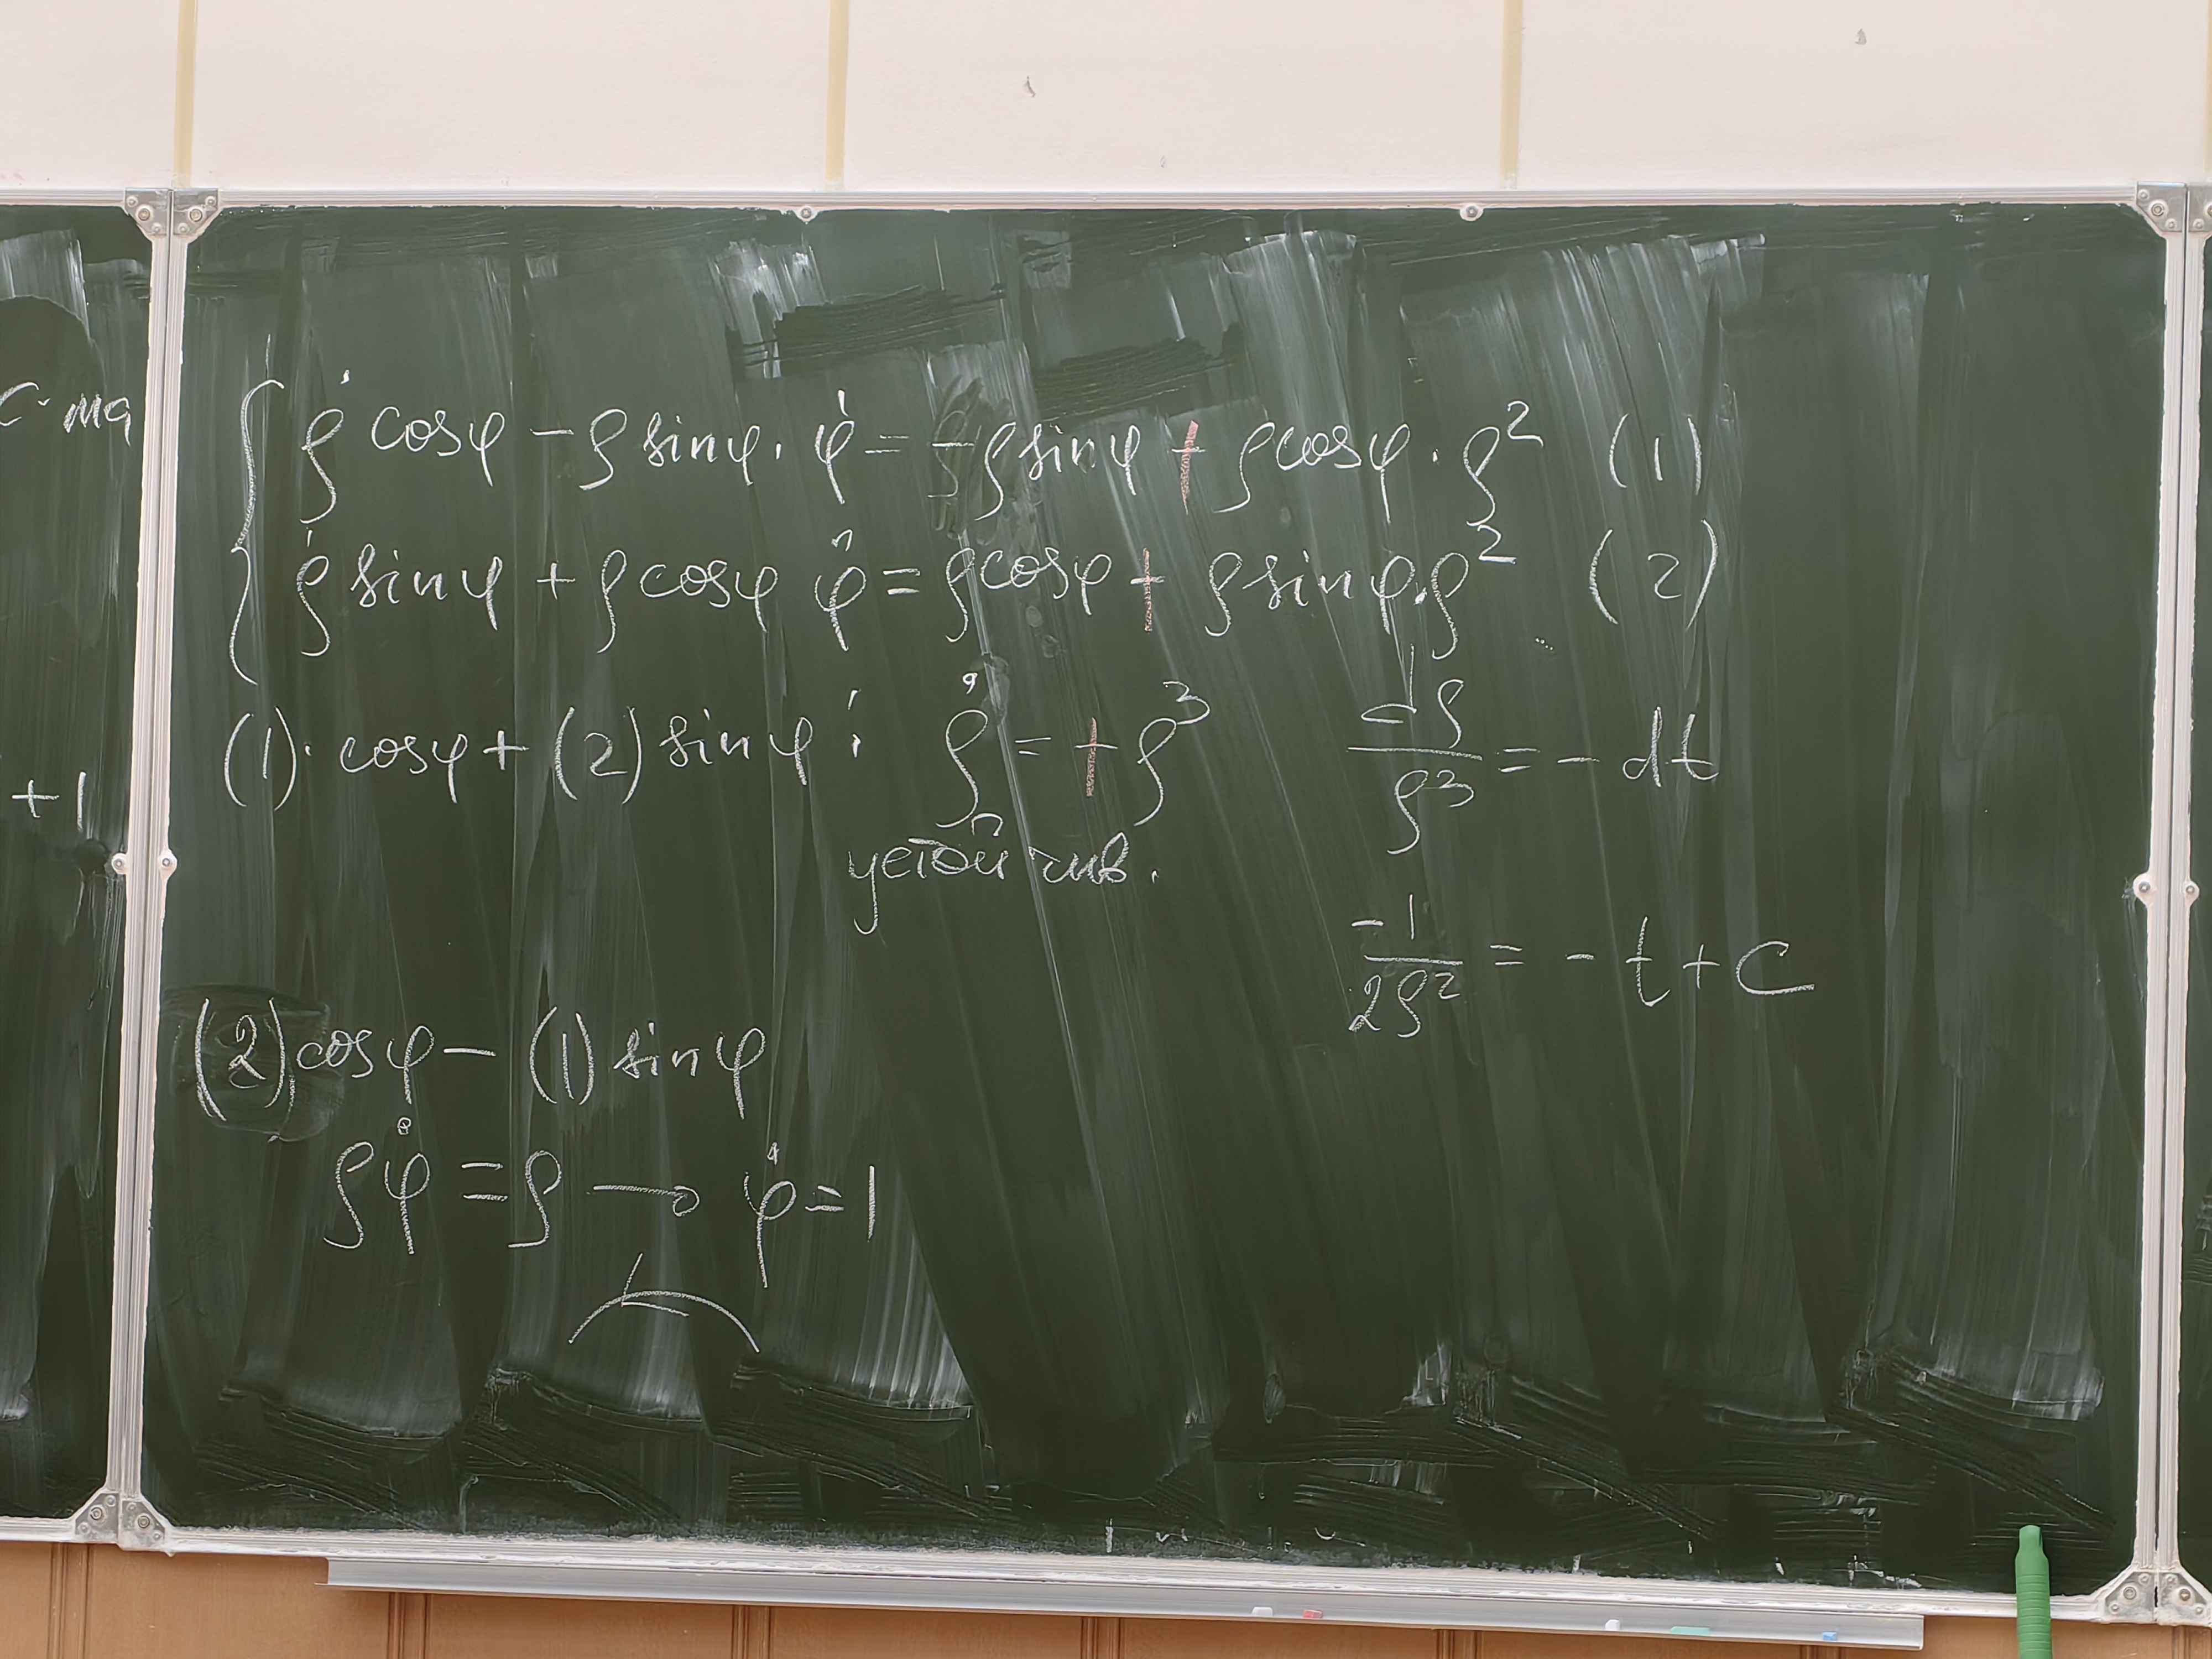 с-ма
+1
ρ̇ cosφ − ρ sinφ · φ̇ = −ρ sinφ + ρ cosφ · ρ² (1)
ρ̇ sinφ + ρ cosφ φ̇ = ρ cosφ + ρ sinφ · ρ² (2)
(1) · cosφ + (2) sinφ : ρ̇ = + ρ³
устойчив.
dρ/ρ³ = − dt
−1/2ρ² = − t + C
(2) cosφ − (1) sinφ
ρφ̇ = ρ → φ̇ = 1